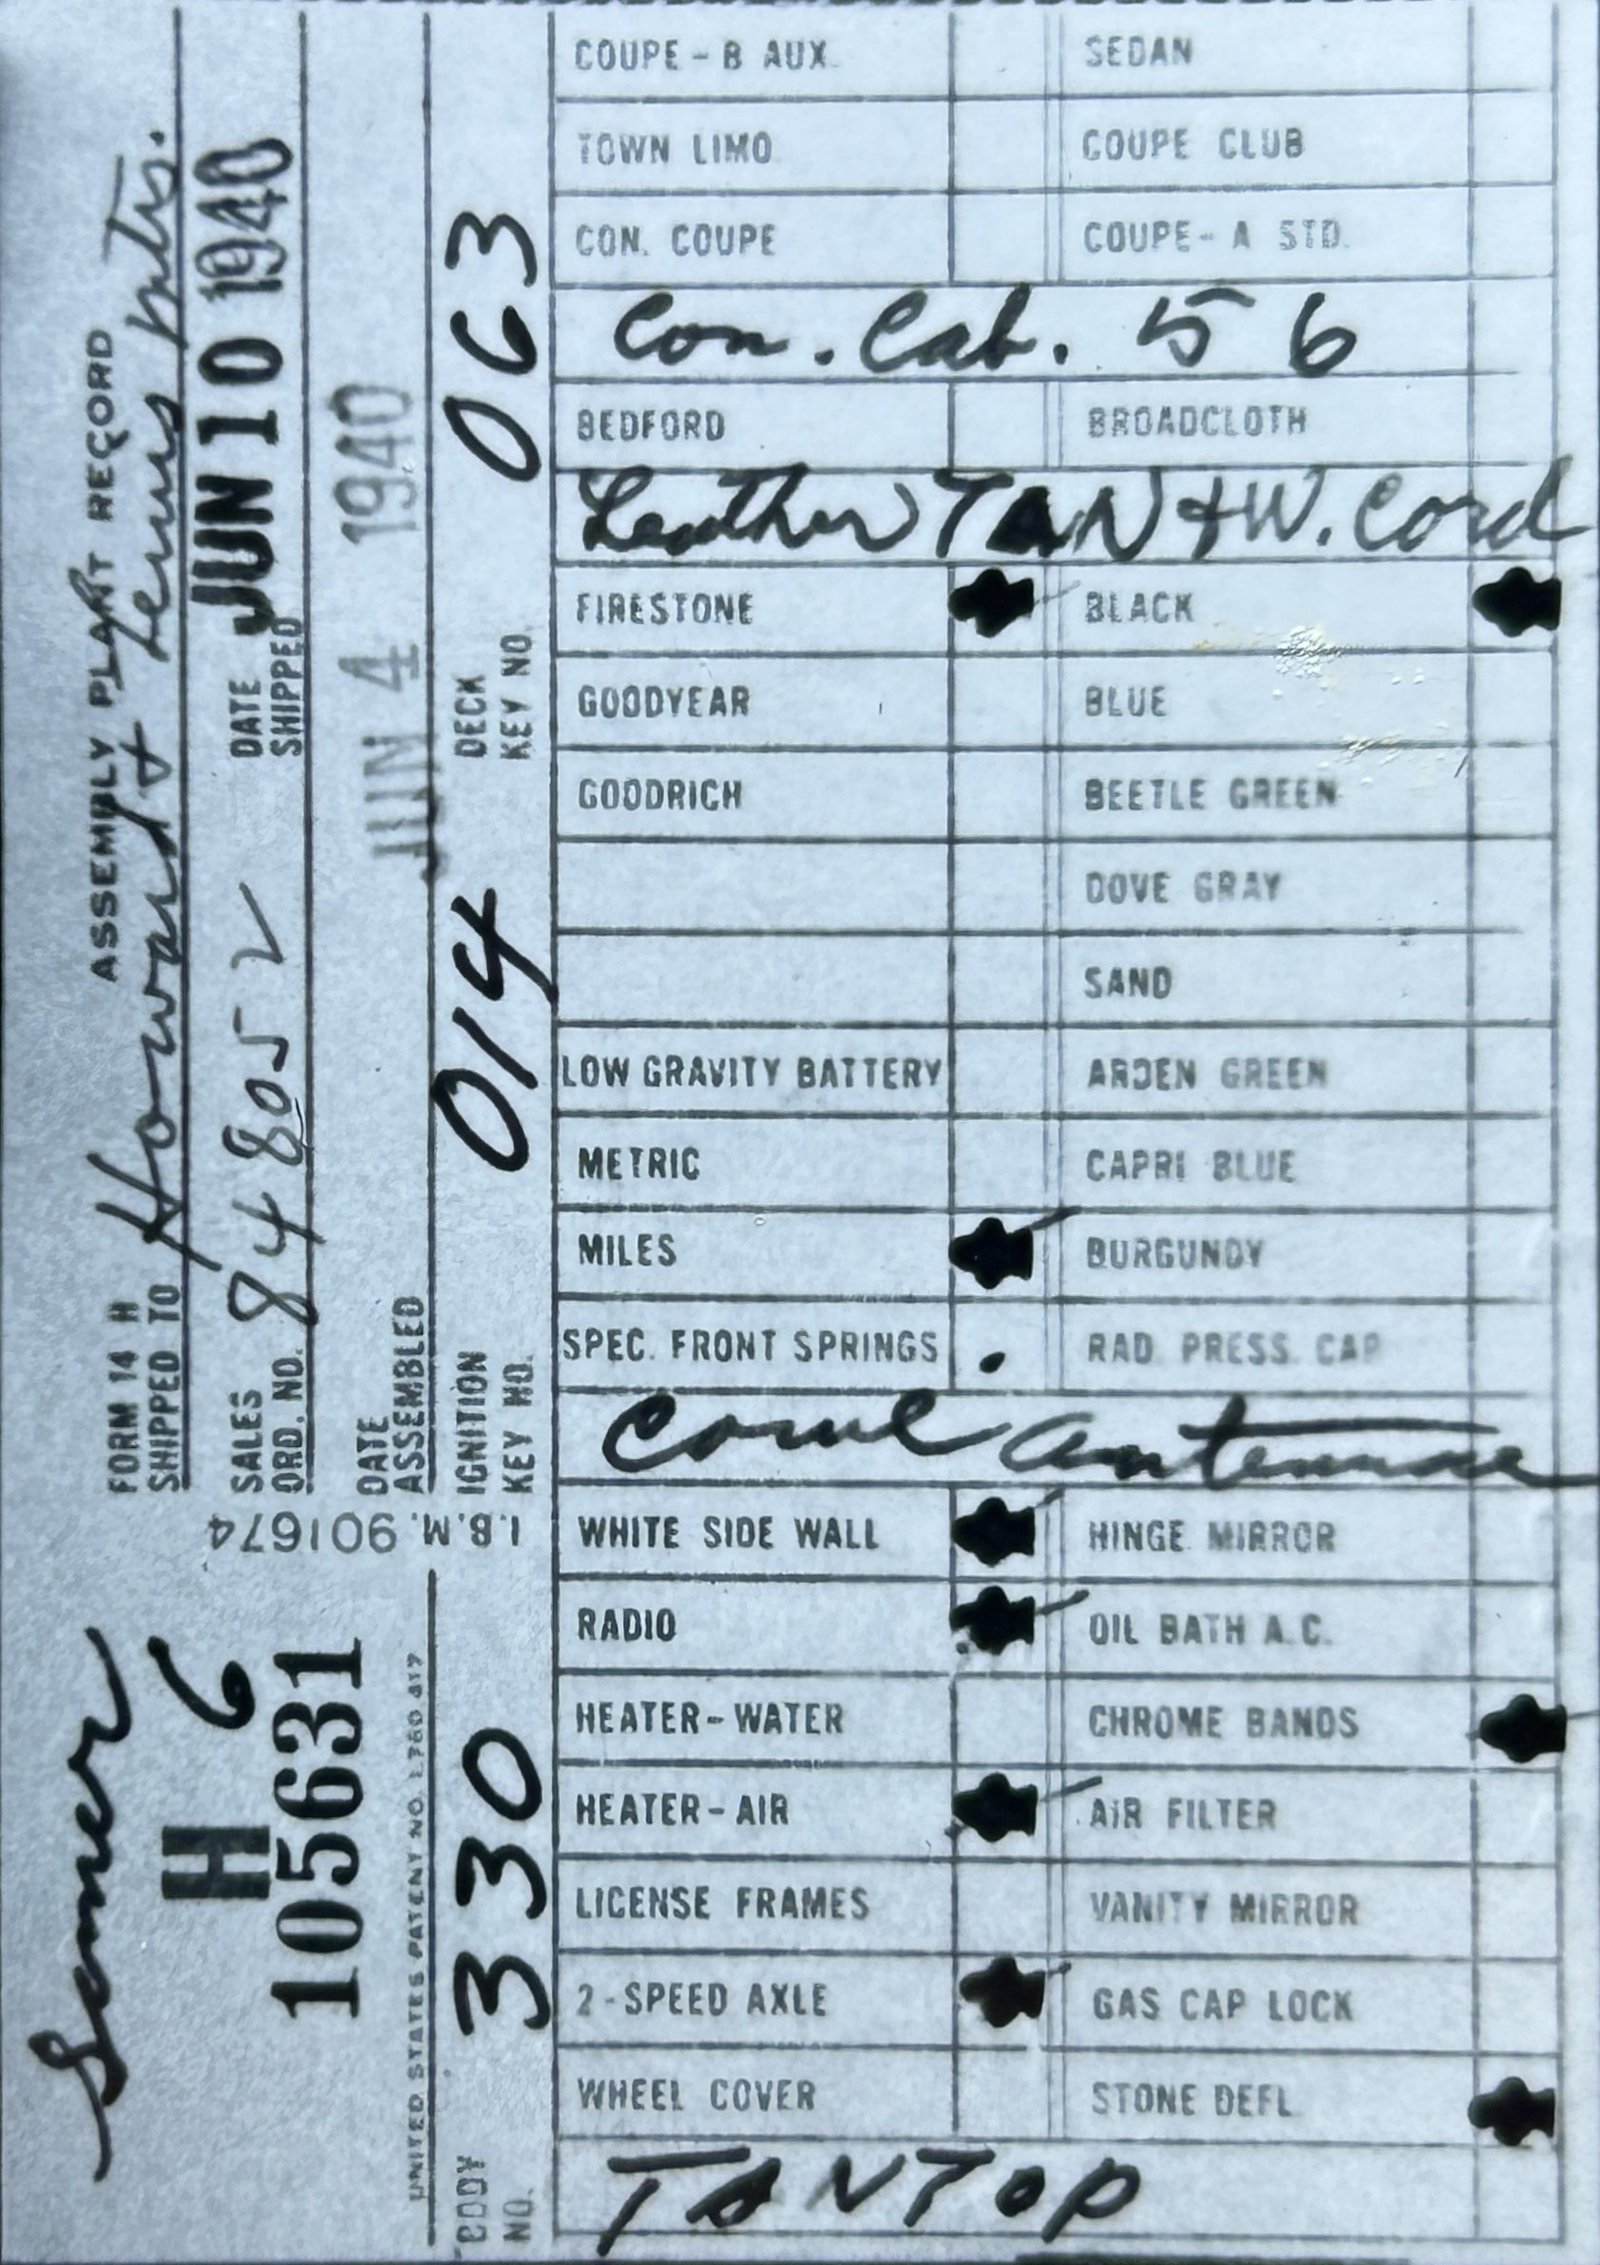 ASSEMBLY PLANT RECORD
FORM 14 H
SHIPPED TO Howard & Lewis Mtrs.
SALES ORD. NO. 848052
DATE SHIPPED JUN 10 1940
DATE ASSEMBLED JUN 4 1940
IGNITION KEY NO. 014
DECK KEY NO. 063
I.B.M. 901674
H 6
105631
UNITED STATES PATENT NO. 1,780,417
BODY NO. 330
COUPE - B AUX. SEDAN
TOWN LIMO COUPE CLUB
CON. COUPE COUPE - A STD.
Con. Cab. 56
BEDFORD BROADCLOTH
Leather TAN & W. Cord
FIRESTONE BLACK
GOODYEAR BLUE
GOODRICH BEETLE GREEN
DOVE GRAY
SAND
LOW GRAVITY BATTERY ARDEN GREEN
METRIC CAPRI BLUE
MILES BURGUNDY
SPEC. FRONT SPRINGS RAD. PRESS. CAP
Cowl Antennae
WHITE SIDE WALL HINGE MIRROR
RADIO OIL BATH A.C.
HEATER - WATER CHROME BANDS
HEATER - AIR AIR FILTER
LICENSE FRAMES VANITY MIRROR
2 - SPEED AXLE GAS CAP LOCK
WHEEL COVER STONE DEFL
TAN TOP